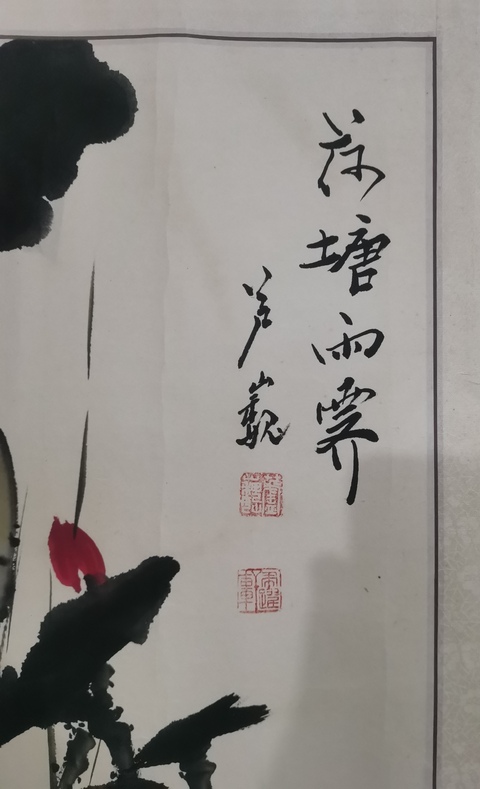 荷塘雨霁
芦巍